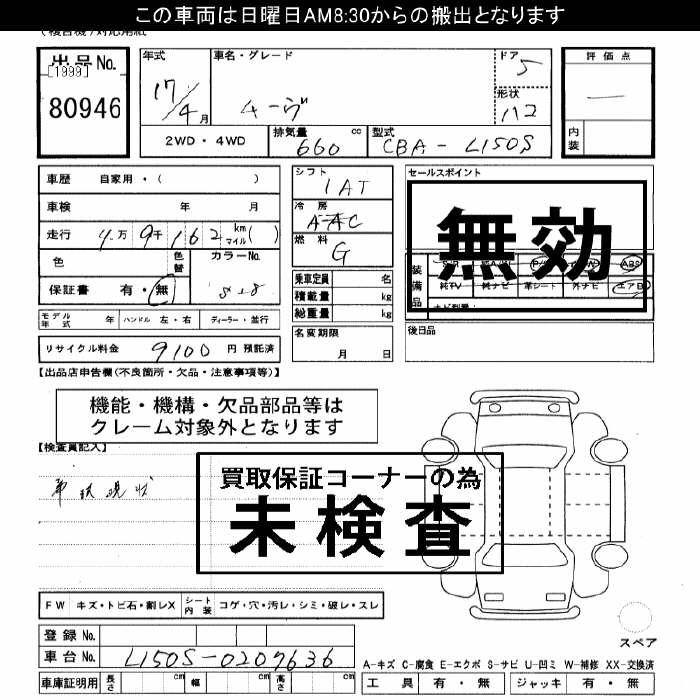 この車両は日曜日AM8:30からの搬出となります
出品No.
[1999]
80946
年式
17/4月
車名・グレード
ムーヴ
ドア
5
形状
評価点
—
内装
2WD・4WD
排気量 660 cc
型式 CBA-L150S
車歴 自家用・( )
車検 年 月
走行 万 9千 162 km マイル( )
色
色替
カラーNo.
S28
保証書 有・無
シフト
1AT
冷房
AAC
燃料
G
乗車定員 名
積載量 kg
総重量 kg
セールスポイント
無効
装備品
ABS
純TV 純ナビ 革シート 外ナビ エアB
モデル年式 年 ハンドル 左・右 ディーラー・並行
名変期限
月 日
後日品
リサイクル料金 9100 円 預託済
【出品店申告欄(不良箇所・欠品・注意事項等)】
機能・機構・欠品部品等は
クレーム対象外となります
【検査員記入】
現状
買取保証コーナーの為
未検査
FW キズ・トビ石・割レX シート内装 コゲ・穴・汚レ・シミ・破レ・スレ
スペア
登録No.
車台No. L150S-0207636
A-キズ C-腐食 E-エクボ S-サビ U-凹ミ W-補修 XX-交換済
車庫証明用 長さ cm 幅 cm 高さ cm
工具 有・無 ジャッキ 有・無